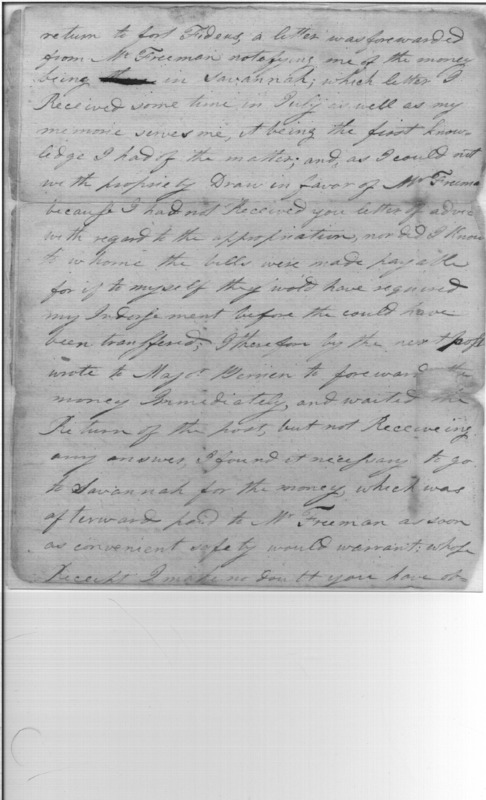 return to fort Fideus, a letter was forewarded
from Mr Freeman notefying me of the money
being in Savannah; which letter I
Received some time in July as well as my
memorie serves me, it being the first know-
ledge I had of the matter; and, as I could not
with propriety Draw in favor of Mr Freeman
because I had not Received you letter of advice
with regard to the appropriation, nor ded I know
to whome the bills were made payable
for if to myself they wold have required
my Indorsement before the could have
been transffered; I therefore by the next post
wrote to Majr Berrien to foreward the
money Immediately, and waited the
Return of the post, but not Receiveing
any answer, I found it necessary to go
to Savannah for the money, which was
afterward paid to Mr Freeman as soon
as convenient safety would warrant; whose
Receipt I make no doubt you have